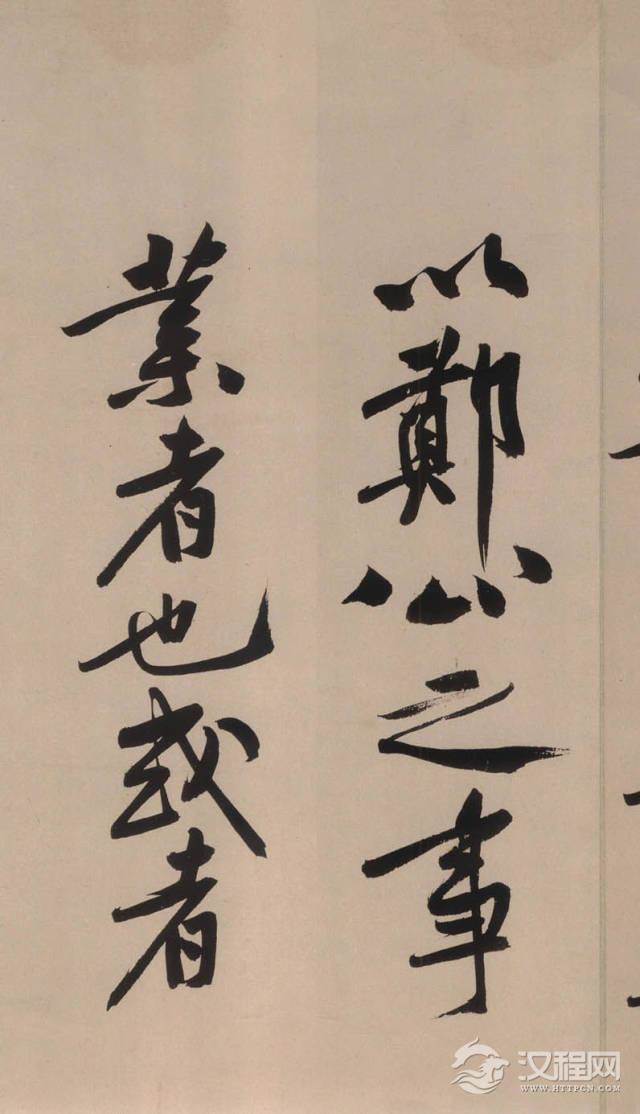 以鄭公之事
業者也或者
汉程网
WWW.HTTPCN.COM